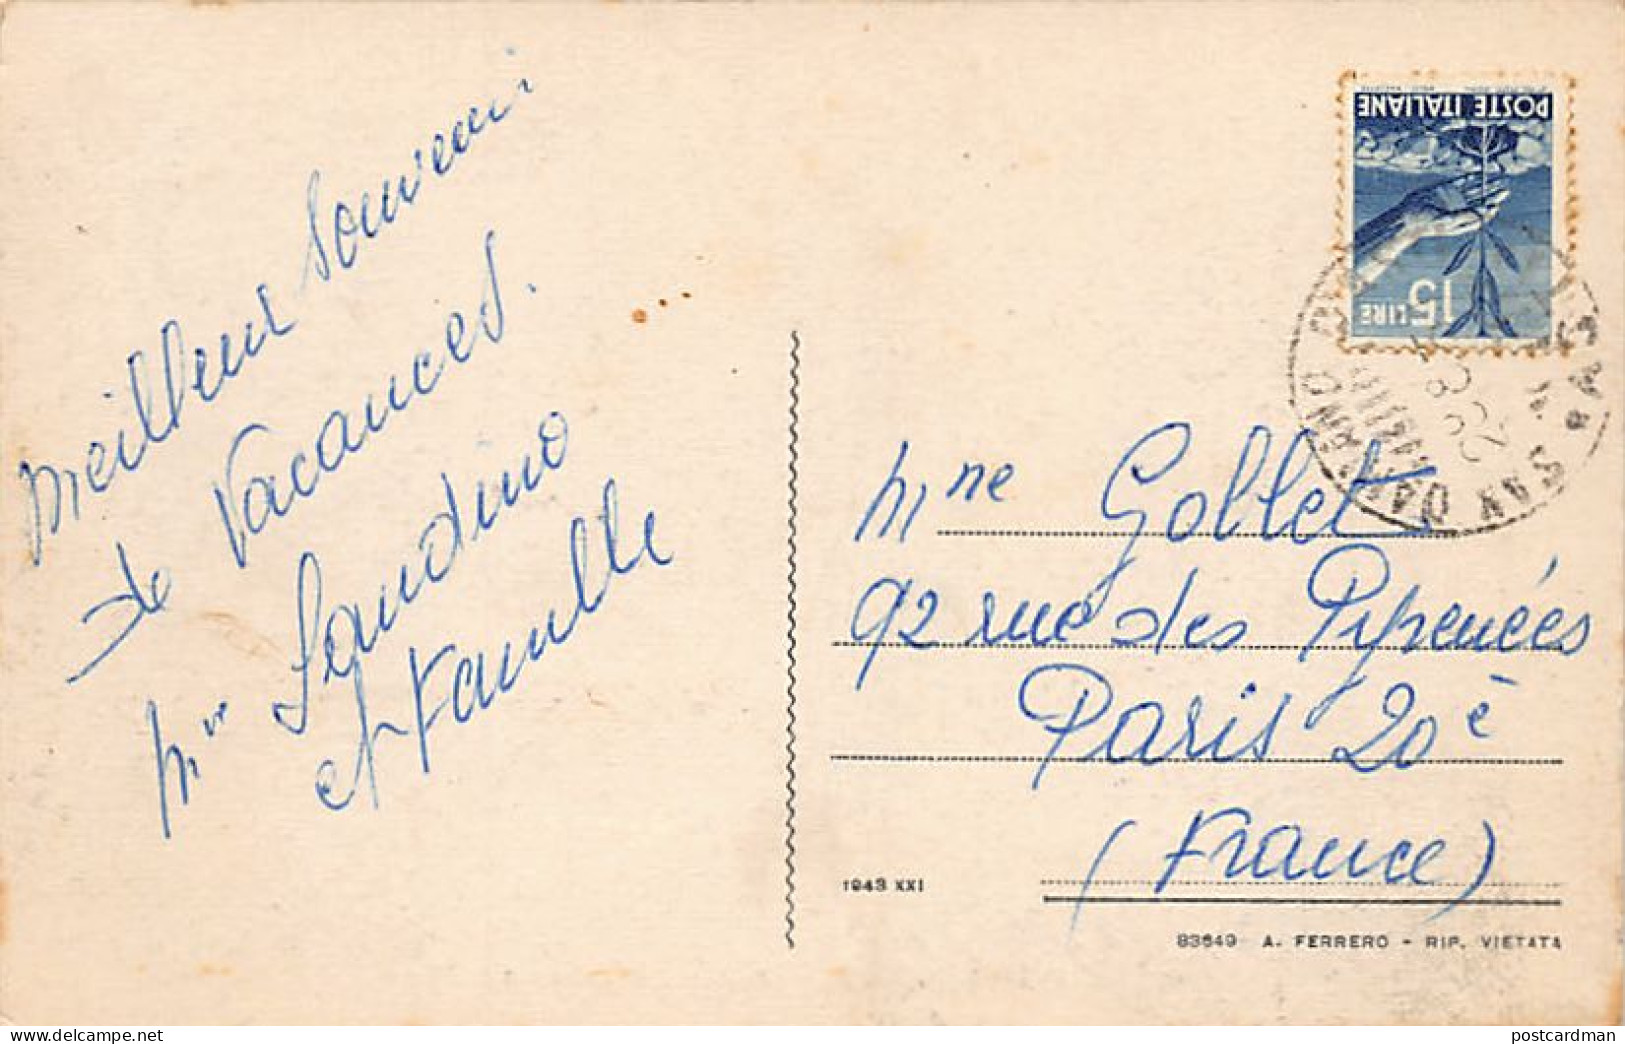 Meilleur Souvenir
de Vacances.
Mme Sandino
et Famille
POSTE ITALIANE
15 LIRE
SAN DA
Mme Gollet
92 rue des Pyrenées
Paris 20è
(France)
1943 XXI
83649 A. FERRERO - RIP. VIETATA
delcampe.net
postcardman